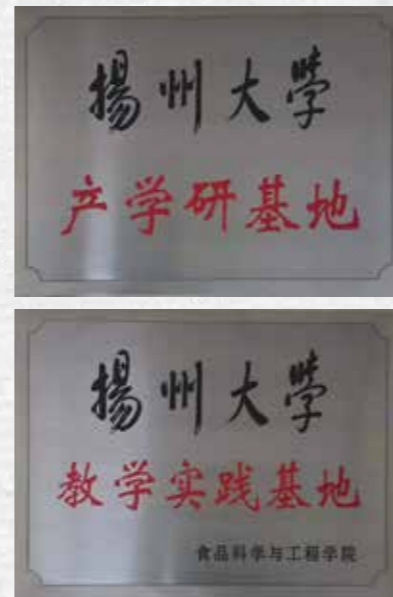 揚州大學
产学研基地
揚州大學
教学实践基地
食品科学与工程学院